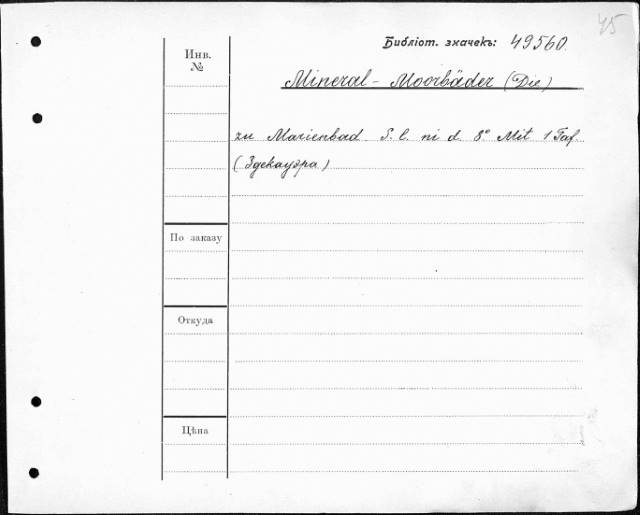 45
Библіот. значекъ: 49560.
Инв.
№
Mineral - Moorbäder (Die)
zu Marienbad. S. l. ni d. 8° Mit 1 Taf.
(Здекауэра)
По заказу
Откуда
Цѣна